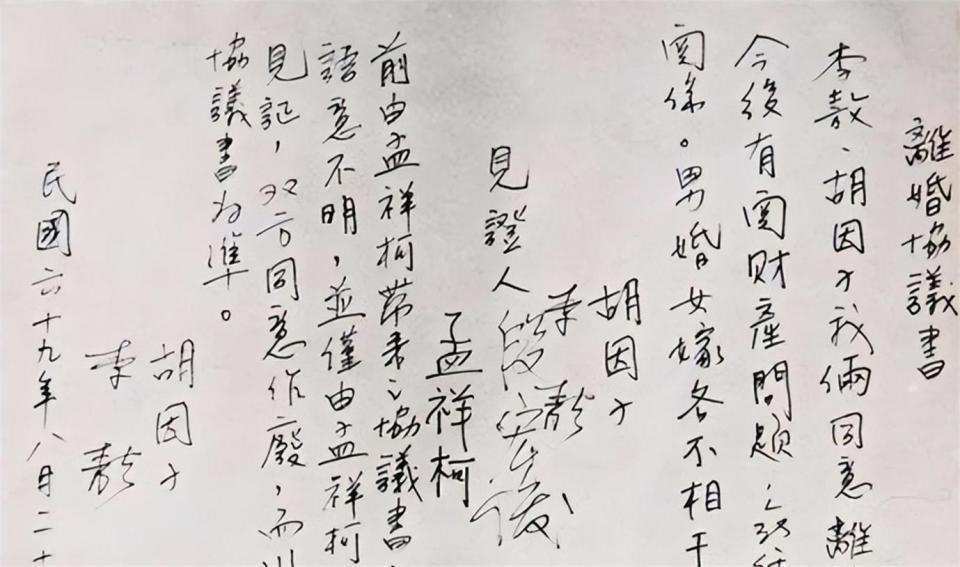 離婚協議書
李敖、胡因子我倆同意離
今後有関財産問題
関係。男婚女嫁各不相干
胡因子
李敖
見證人
段宏俊
孟祥柯
前由孟祥柯帶来之協議書
語意不明，並僅由孟祥柯
見証，双方同意作廢，而以
協議書為準。
胡因子
李敖
民國六十九年八月二十